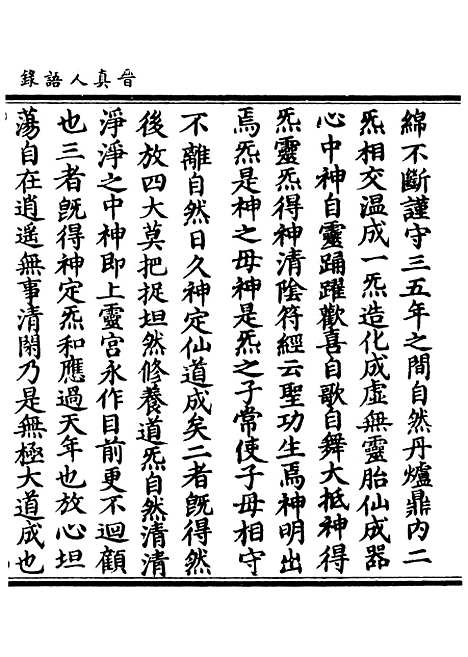 晉真人語錄
綿不斷謹守三五年之間自然丹爐鼎內二
炁相交温成一炁造化成虛無靈胎仙成器
心中神自靈踊躍歡喜自歌自舞大抵神得
炁靈炁得神清陰符經云聖功生焉神明出
焉炁是神之母神是炁之子常使子母相守
不離自然日久神定仙道成矣二者旣得然
後放四大莫把捉坦然修養道炁自然清清
淨淨之中神即上靈宮永作目前更不迴顧
也三者旣得神定炁和應過天年也放心坦
蕩自在逍遥無事清閑乃是無極大道成也